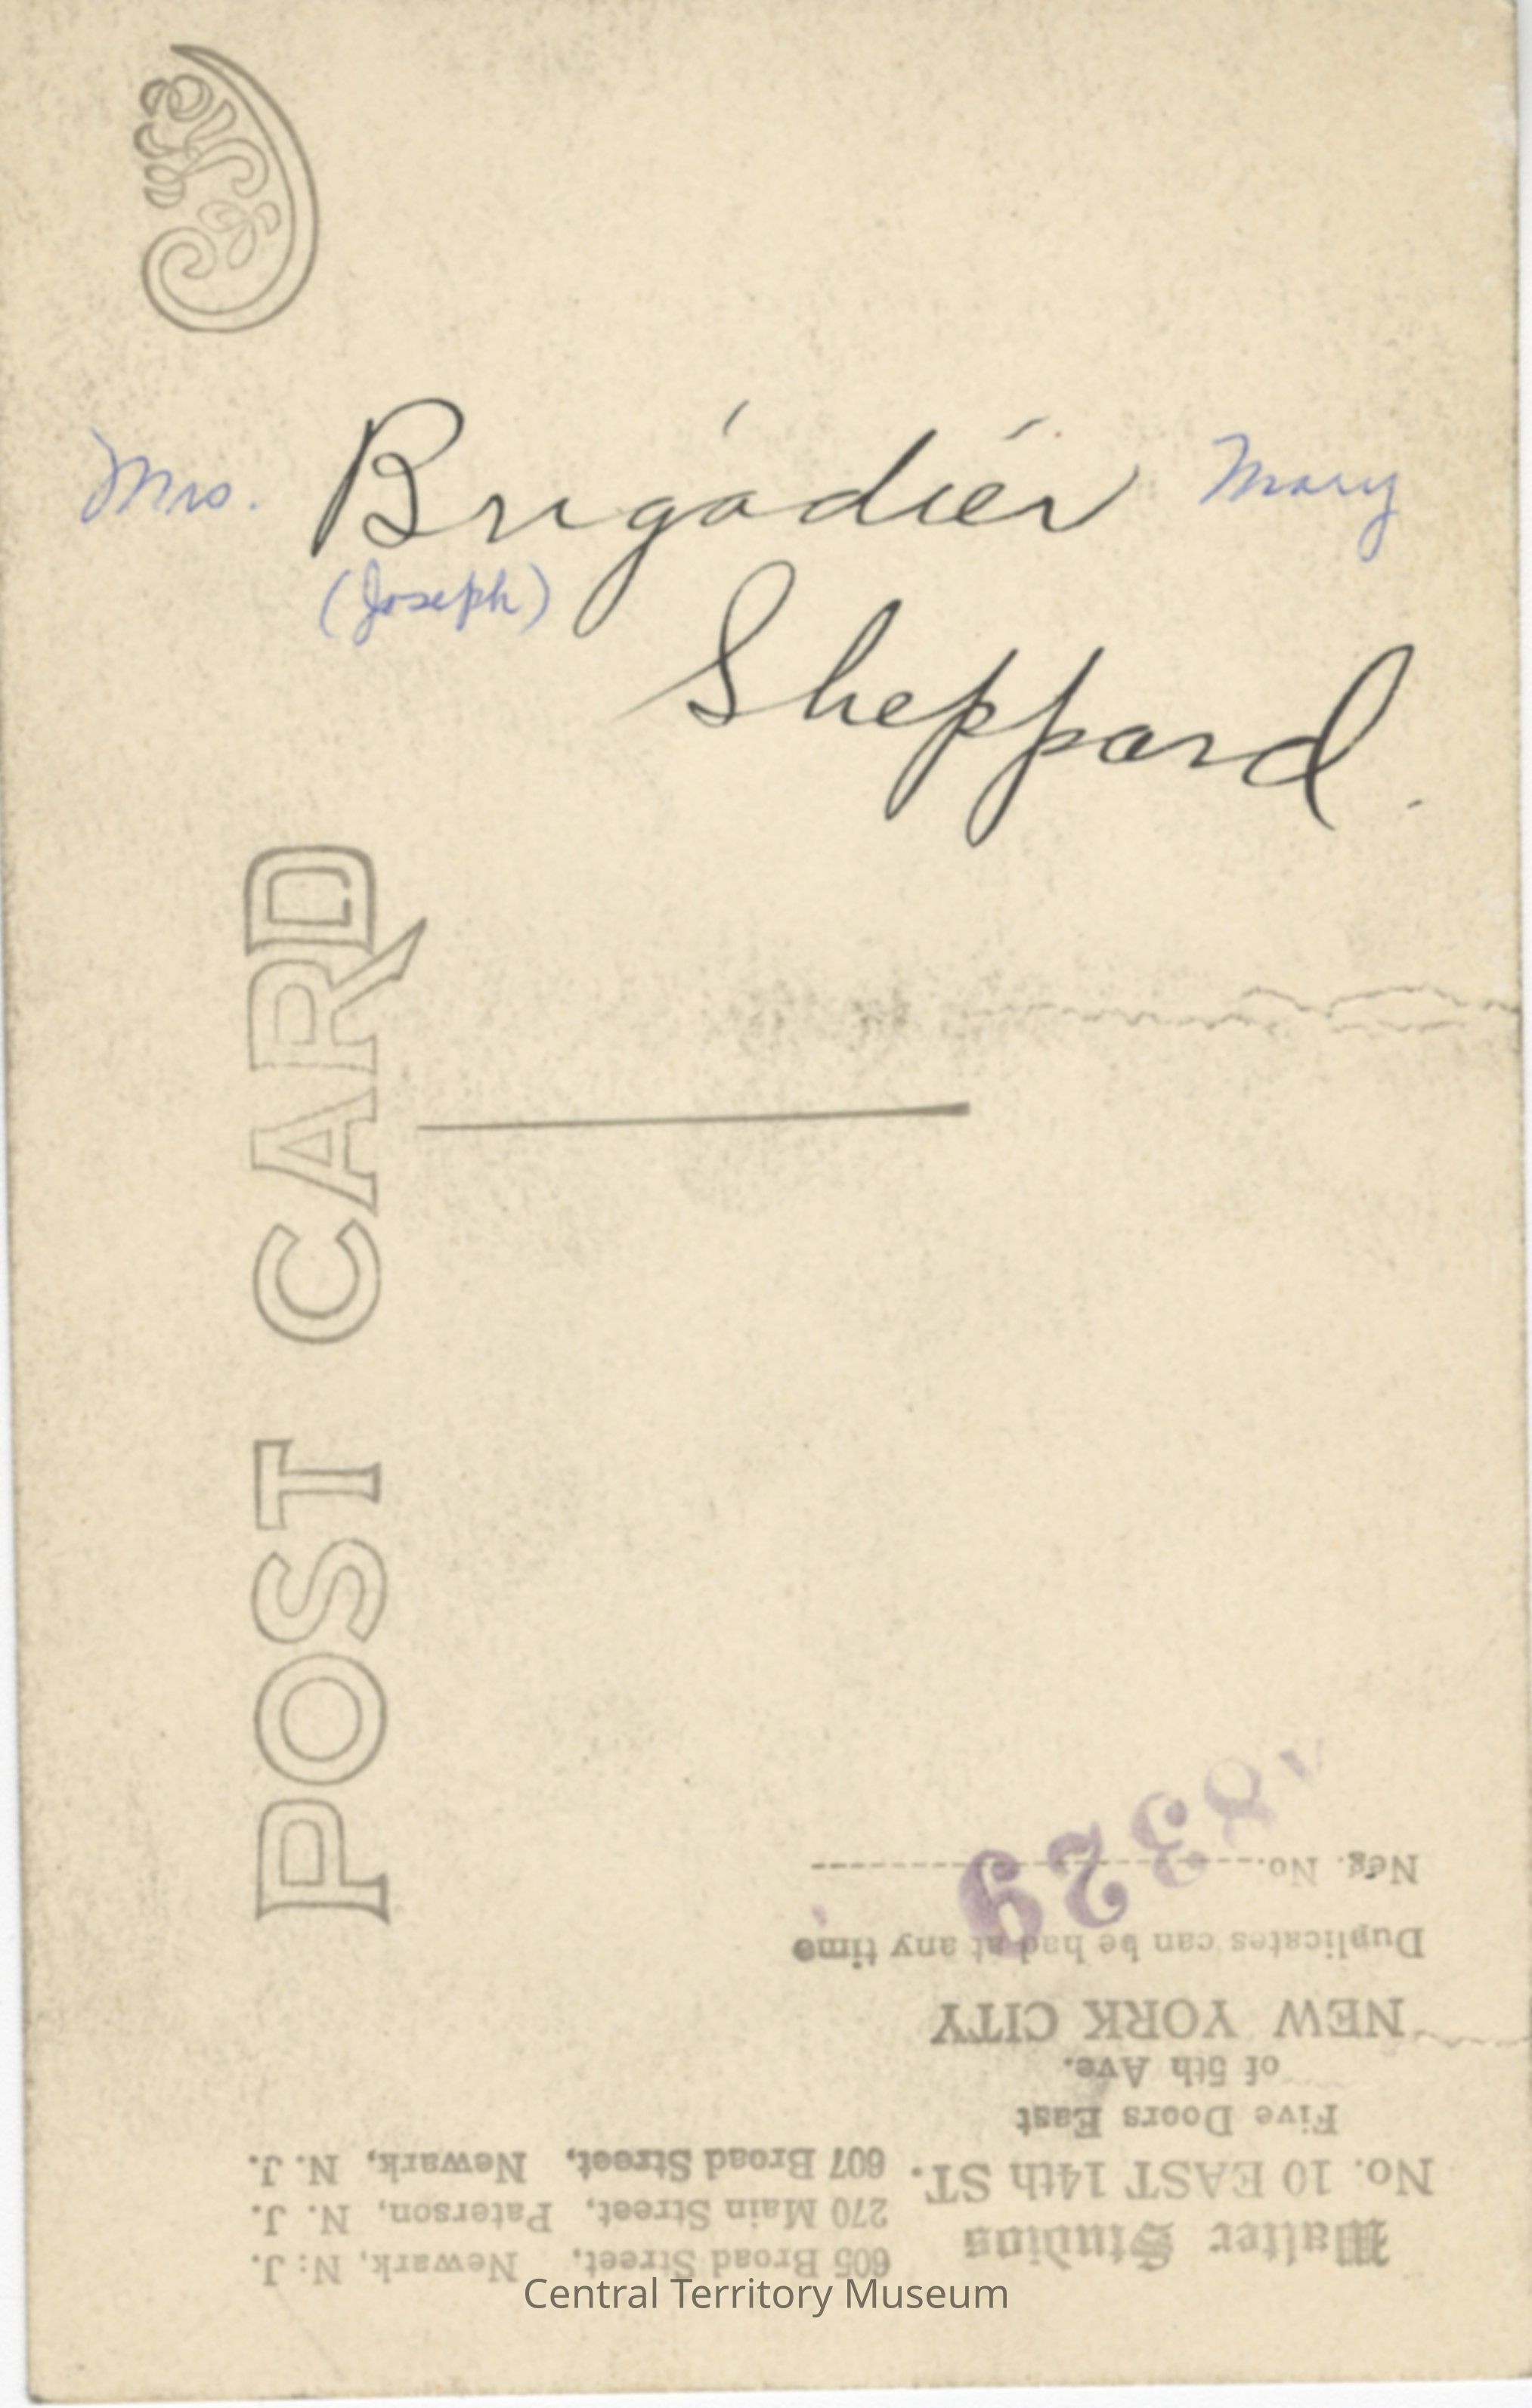 Mrs. Brigadier Mary
(Joseph)
Sheppard.
POST CARD
Walter Studios
No. 10 EAST 14th ST.
Five Doors East
of 5th Ave.
NEW YORK CITY
Duplicates can be had at any time
Neg. No.
8329
605 Broad Street, Newark, N. J.
270 Main Street, Paterson, N. J.
607 Broad Street, Newark, N. J.
Central Territory Museum